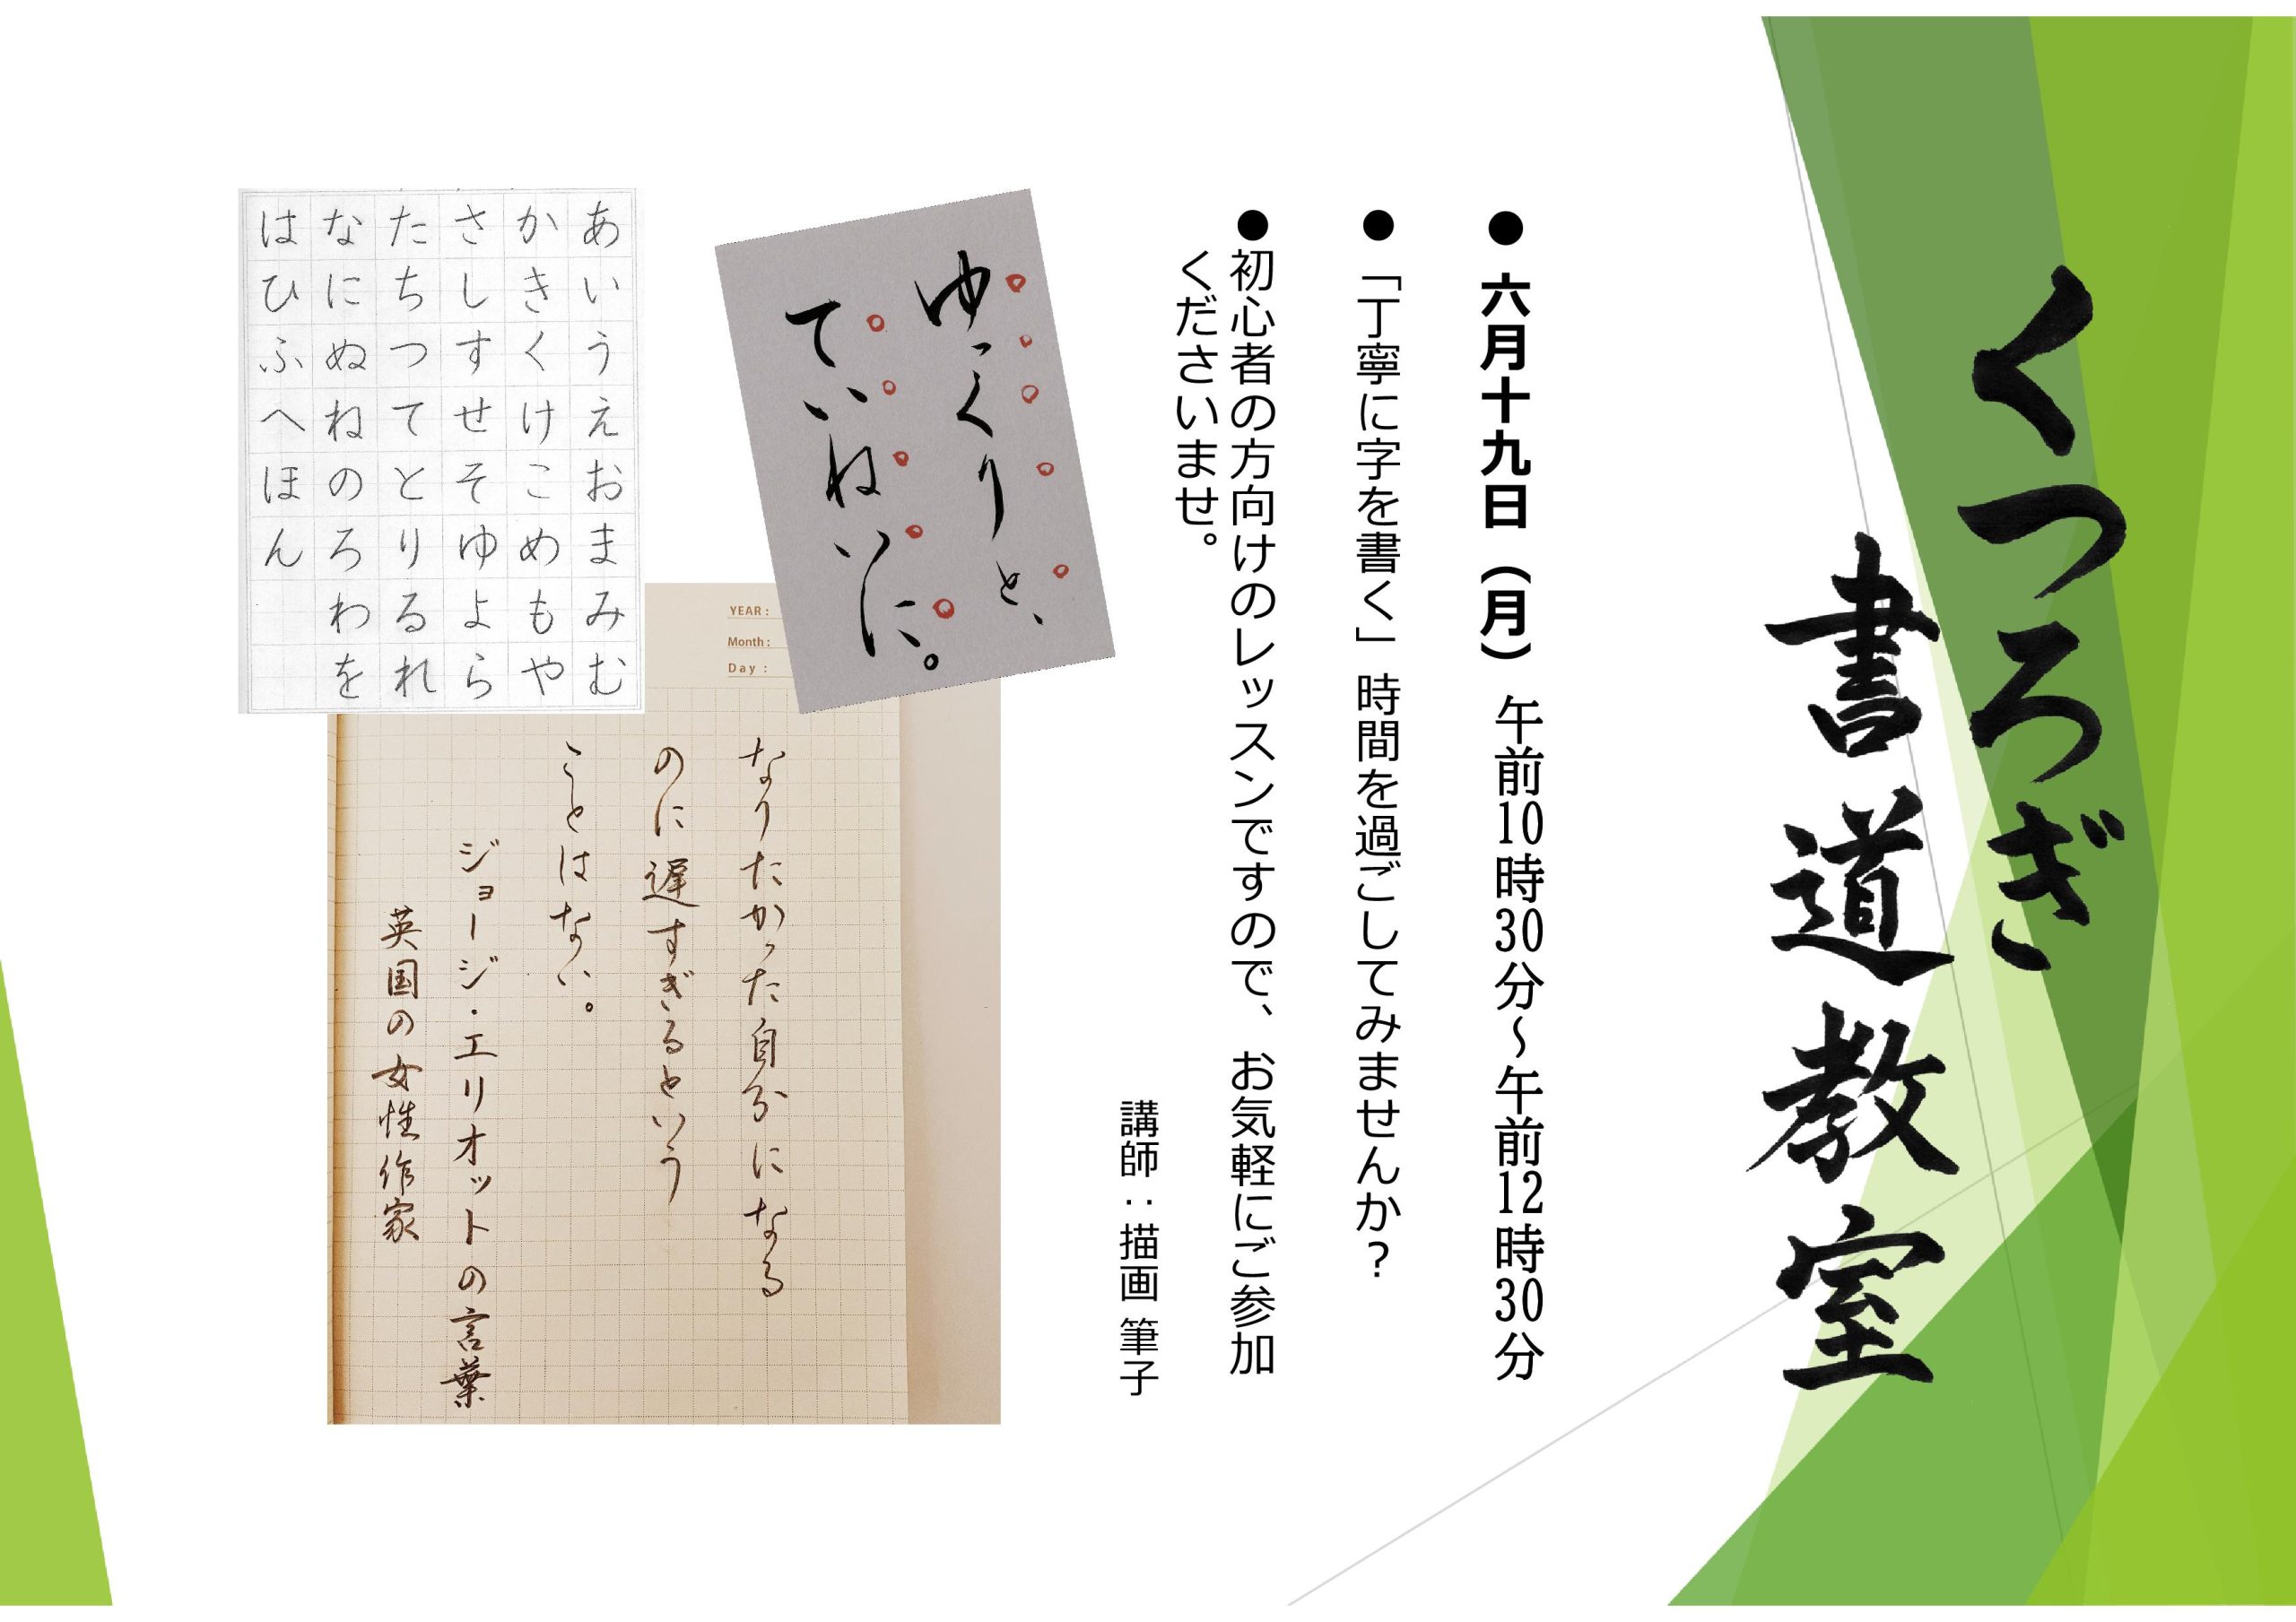 くつろぎ
書道教室
● 六月十九日（月）午前10時30分～午前12時30分
● 「丁寧に字を書く」時間を過ごしてみませんか？
●初心者の方向けのレッスンですので、お気軽にご参加
くださいませ。
講師：描画 筆子
ゆっくりと、
ていねいに。
あいうえおまみむ
かきくけこめもや
さしすせそゆよら
たちつてとりるれ
なにぬねのろわを
はひふへほん
YEAR：
Month：
Day：
なりたかった自分になる
のに遅すぎるという
ことはない。
ジョージ・エリオットの言葉
英国の女性作家